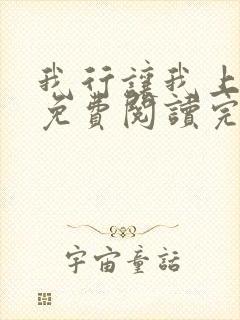 我行讓我上
免費閱讀完
宇宙童話